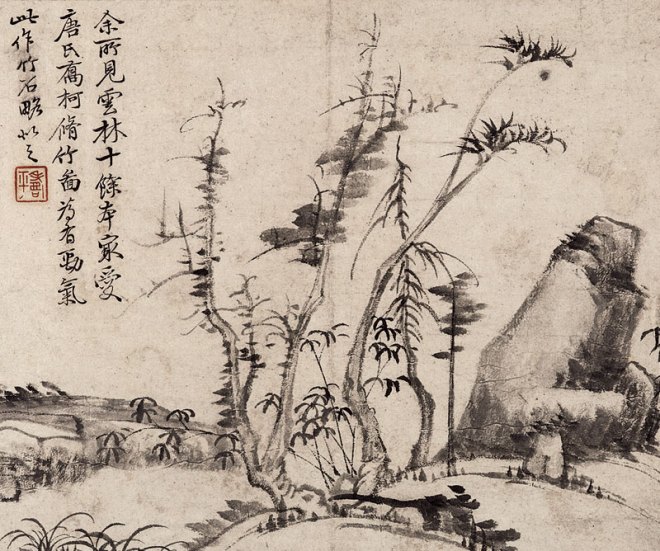 余所見雲林十餘本最愛
唐氏喬柯脩竹圖為有勁氣
此作竹石略似之
壽平